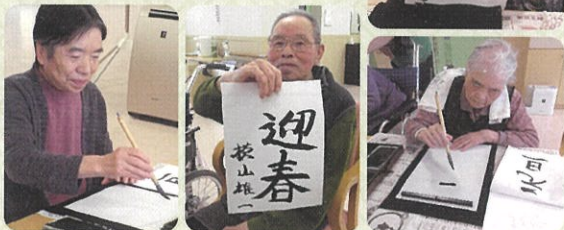 迎春
横山雄一